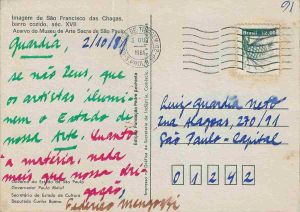 91
Imagem de São Francisco das Chagas,
barro cozido, séc. XVII
Acervo do Museu de Arte Sacra de São Paulo
Guardia, 2/10/81
se não Zeus, que
os artistas ilumi-
nem o Estado de
nossa Arte. Quanto
à matéria, nada
mais que nossa obri-
gação,
Governo do Estado de São Paulo
Governador Paulo Maluf
Secretário de Estado da Cultura
Deputado Cunha Bueno
Brasil
Luiz Guardia Neto
rua Alagoas, 270/91
São Paulo - Capital
01242